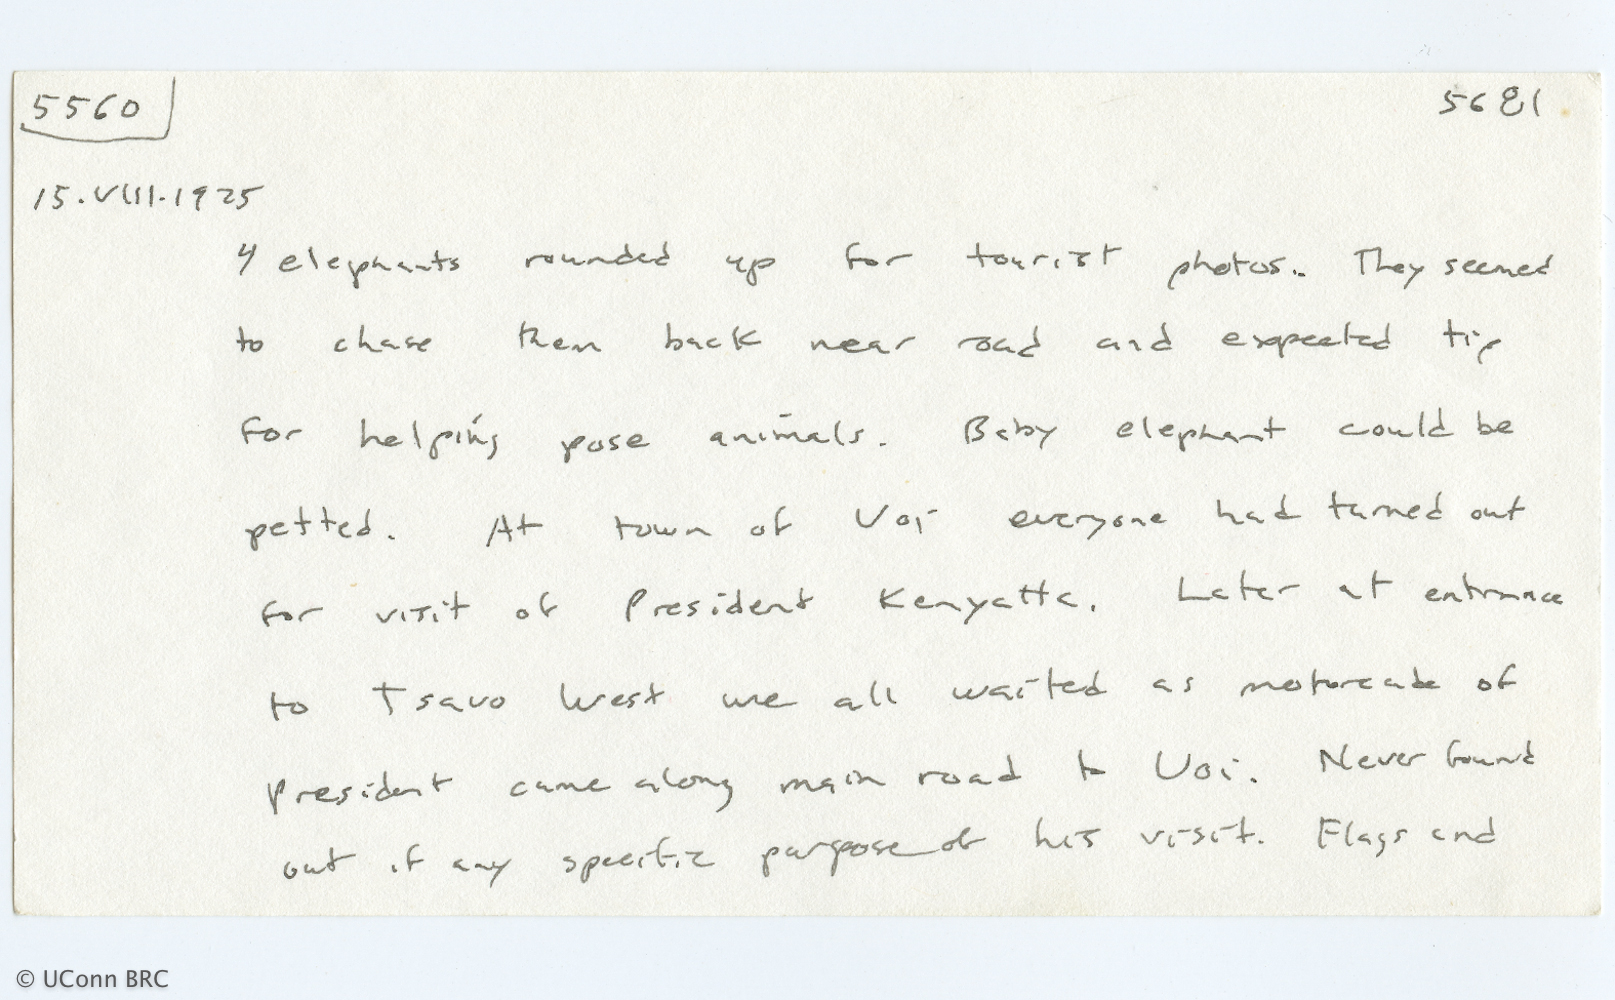 5560
5681
15.VIII.1925
4 elephants rounded up for tourist photos. They seemed
to chase them back near road and expected tip
for helping pose animals. Baby elephant could be
petted. At town of Voi everyone had turned out
for visit of President Kenyatta. Later at entrance
to Tsavo West we all waited as motorcade of
President came along main road to Voi. Never found
out if any specific purpose of his visit. Flags and
© UConn BRC